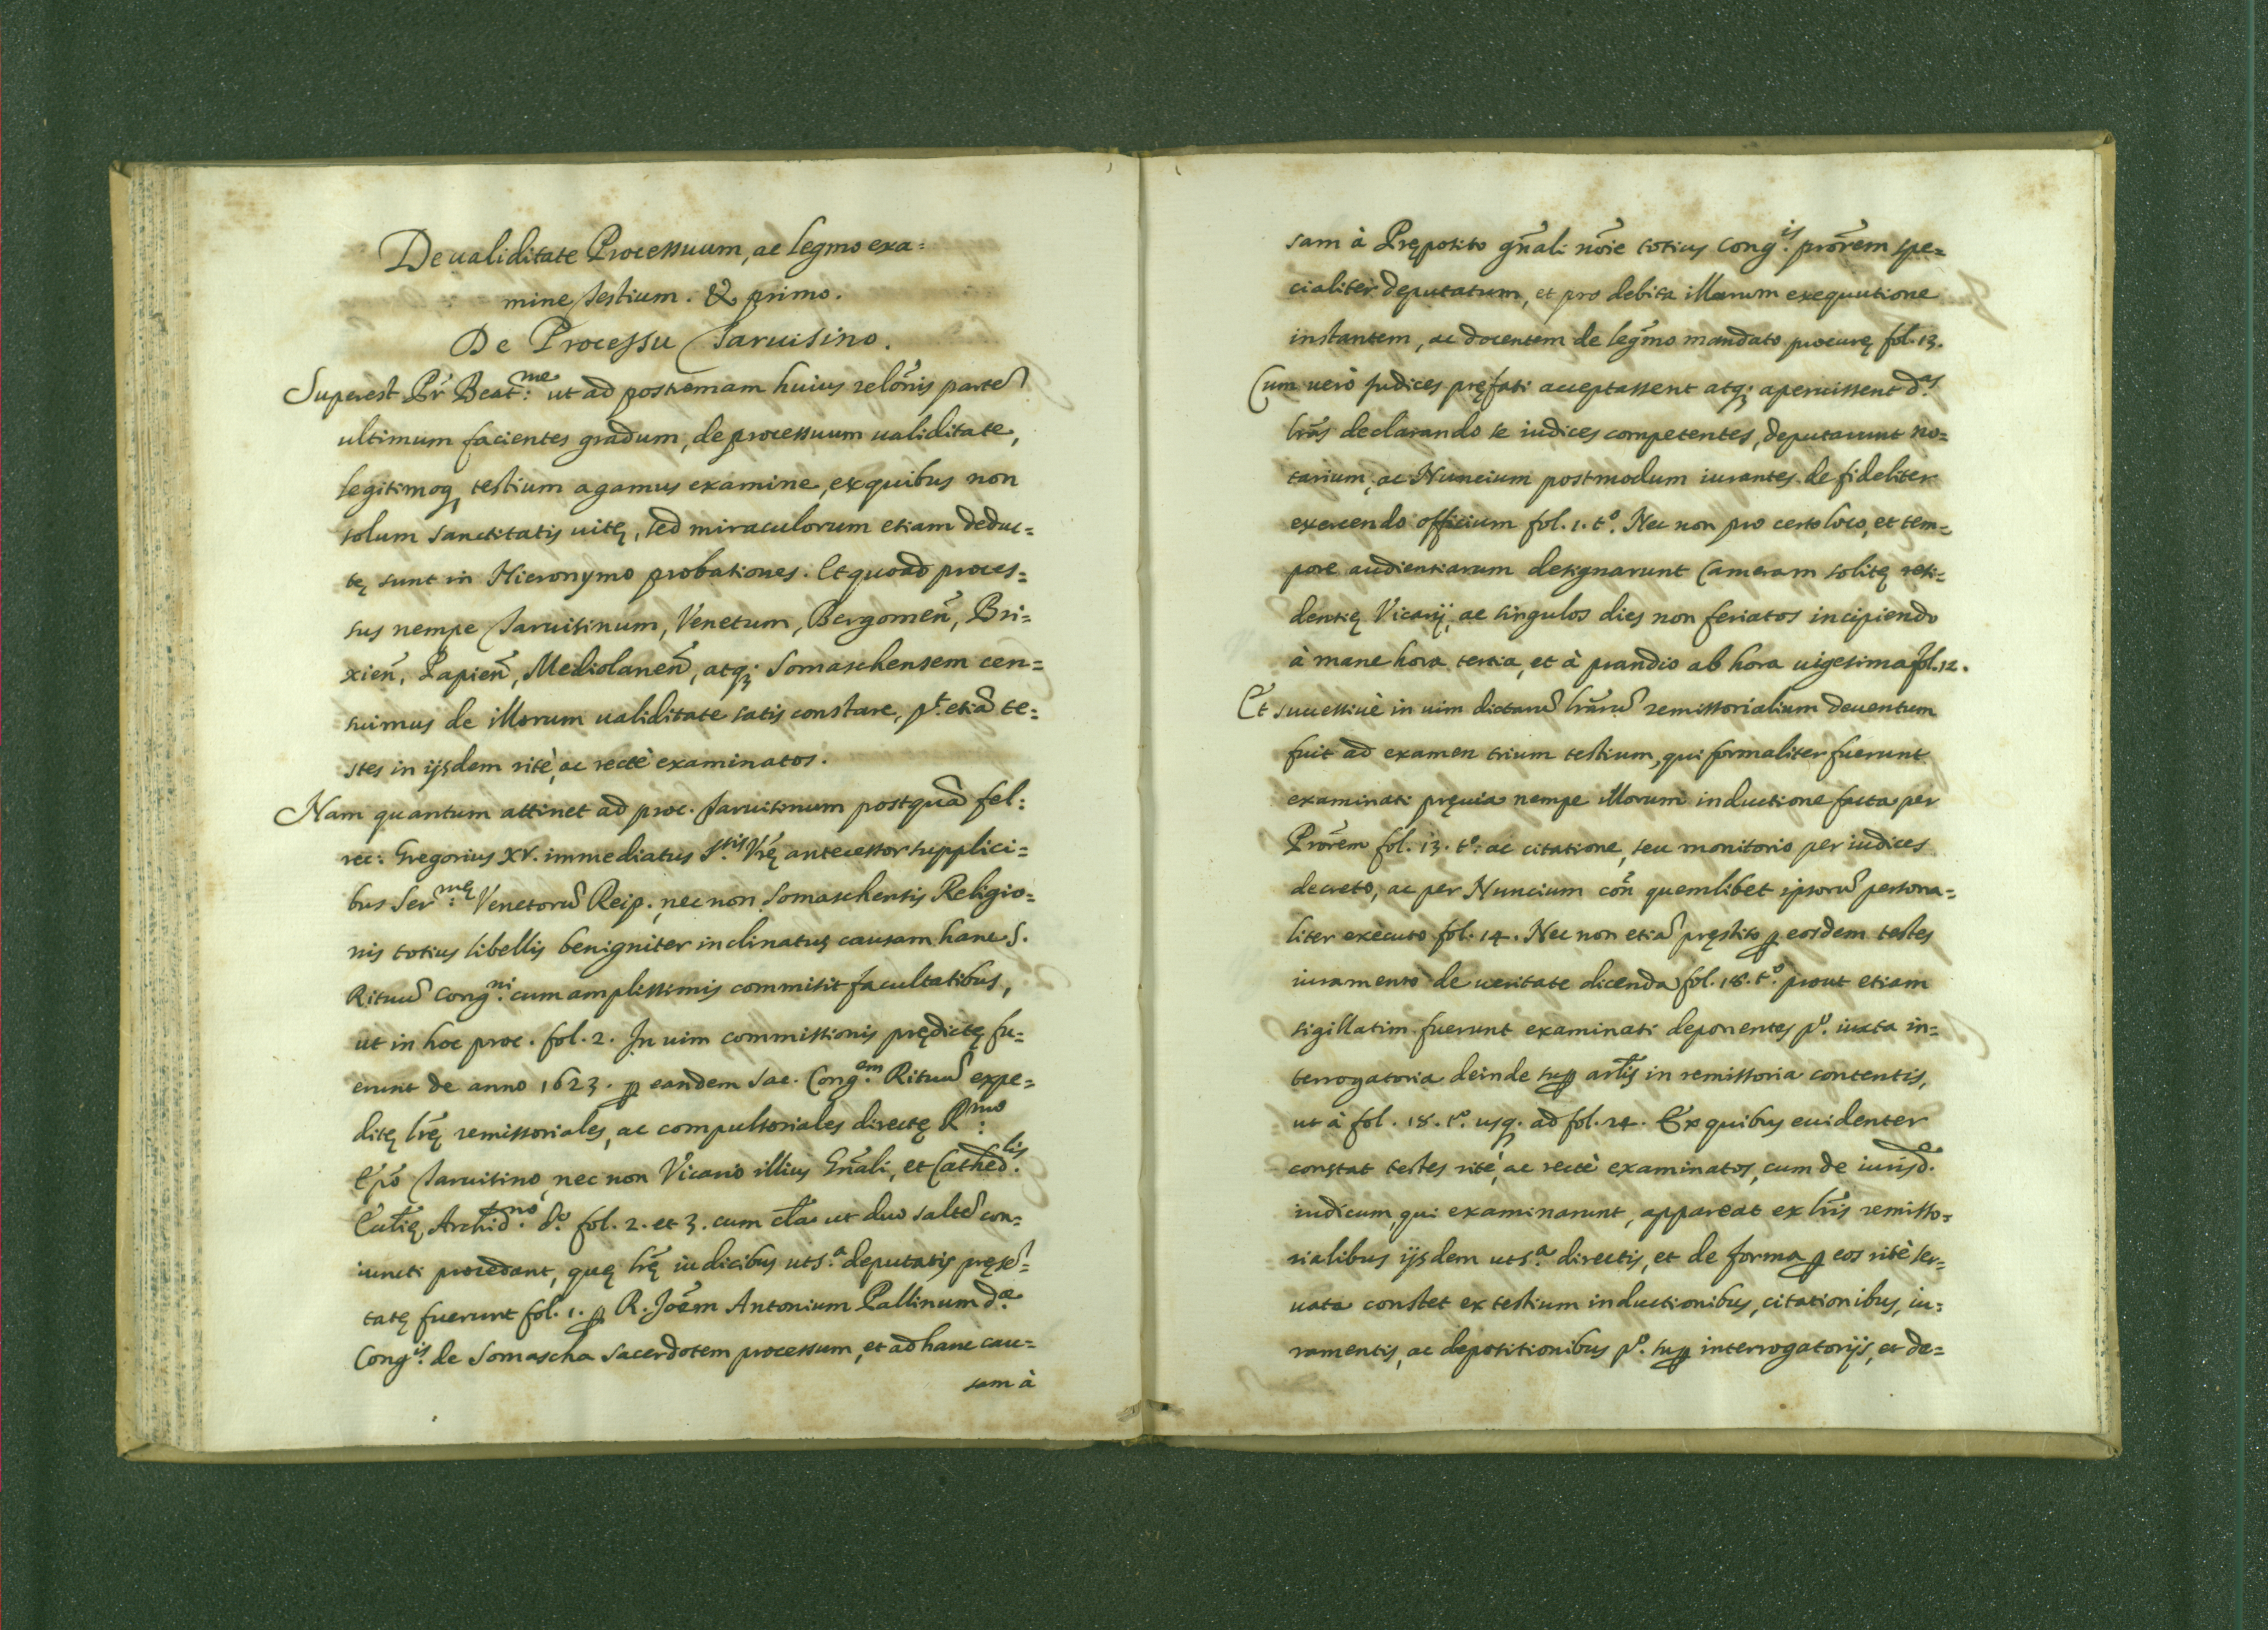 De ualiditate Processuum, ac legmo exa=
mine testium. & primo.
De Processu Taruisino.
Superest Pr̃ Beat:me ut ad postremam huius relõnis partẽ
ultimum facientes gradum, de processuum ualiditate,
legitimoq, testium agamus examine, ex quibus non
solum sanctitatis uitę, sed miraculorum etiam deduc=
tę sunt in Hieronymo probationes. Et quoad proces=
sus nempe Taruisinum, Venetum, Bergomeñ, Bri=
xieñ, Papieñ, Mediolaneñ, atq; Somaschensem cen=
suimus de illorum ualiditate satis constare, pt. etiã te=
stes in ijsdem ritè, ac rectè examinatos.
Nam quantum attinet ad proc. Taruisinum postquã fel:
rec: Gregorius XV. immediatus S.tis Vrę̃ antecessor supplici=
bus Ser:mę Venetorũ Reip. nec non Somaschensis Religio=
nis totius libellis benigniter inclinatus causam hanc S.
Rituũ Cong.ni cum amplissimis commisit facultatibus,
ut in hoc proc. fol. 2. In uim commissionis prędictę fu=
erunt de anno 1623. ꝑ eandem Sac. Cong.em Rituũ expe=
ditę lrę̃ remissoriales, ac compulsoriales directę R:mo
Epõ Taruisino, nec non Vicario illius Gñali, et Cathed.lis
Ecctię̃ Archid.no d.o fol. 2. et 3. cum cla᷉ ut duo saltẽ con=
iuncti procedant, quę lrę̃ iudicibus ut s.a deputatis pręsẽ=
tatę fuerunt fol. 1. ꝑ R. Joẽm Antonium Pallinum d.ę
Cong.is de Somascha sacerdotem processum, et ad hanc cau=
sam à
sam à Pręposito gñali nõie totius Cong.is prõrem spe=
cialiter deputatum, et pro debita illarum exequutione
instantem, ac docentem de legmõ mandato procurę fol. 13.
Cum uerò Judices pręfati acceptassent atq; aperuissent d.as
lrãs declarando se iudices competentes, deputarunt no=
tarium, ac Nuncium postmodum iurantes de fideliter
exercendo officium fol. 1. t.o Nec non pro certo loco, et tem=
pore audientiarum designarunt Cameram solitę resi=
dentię Vicarij, ac singulos dies non feriatos incipiendo
à mane hora tertia, et à prandio ab hora uigesima fol. 12.
Et successiuè in uim dictarũ lrãrũ remissorialium deuentum
fuit ad examen trium testium, qui formaliter fuerunt
examinati pręuia nempe illorum inductione facta per
Prõrem fol. 13. t.o ac citatione, seu monitorio per iudices
decreto, ac per Nuncium cõñ quemlibet ipsorũ persona=
liter executo fol. 14. Nec non etiã pręstito ꝑ eosdem testes
iuramento de ueritate dicenda fol. 18. t.o prout etiam
sigillatim fuerunt examinati deponentes p.o iuxta in=
terrogatoria deinde suꝑ artĩs in remissoria contentis,
ut à fol. 18. t.o usq. ad fol. 24. Ex quibus euidenter
constat testes ritè, ac rectè examinatos, cum de iurisd.e
iudicum, qui examinarunt, appareat ex lrĩs remisso=
rialibus ijsdem ut s.a directis, et de forma ꝑ eos ritè ser=
uata constet ex testium inductionibus, citationibus, iu=
ramentis, ac depositionibus p.o suꝑ interrogatorijs, et de=